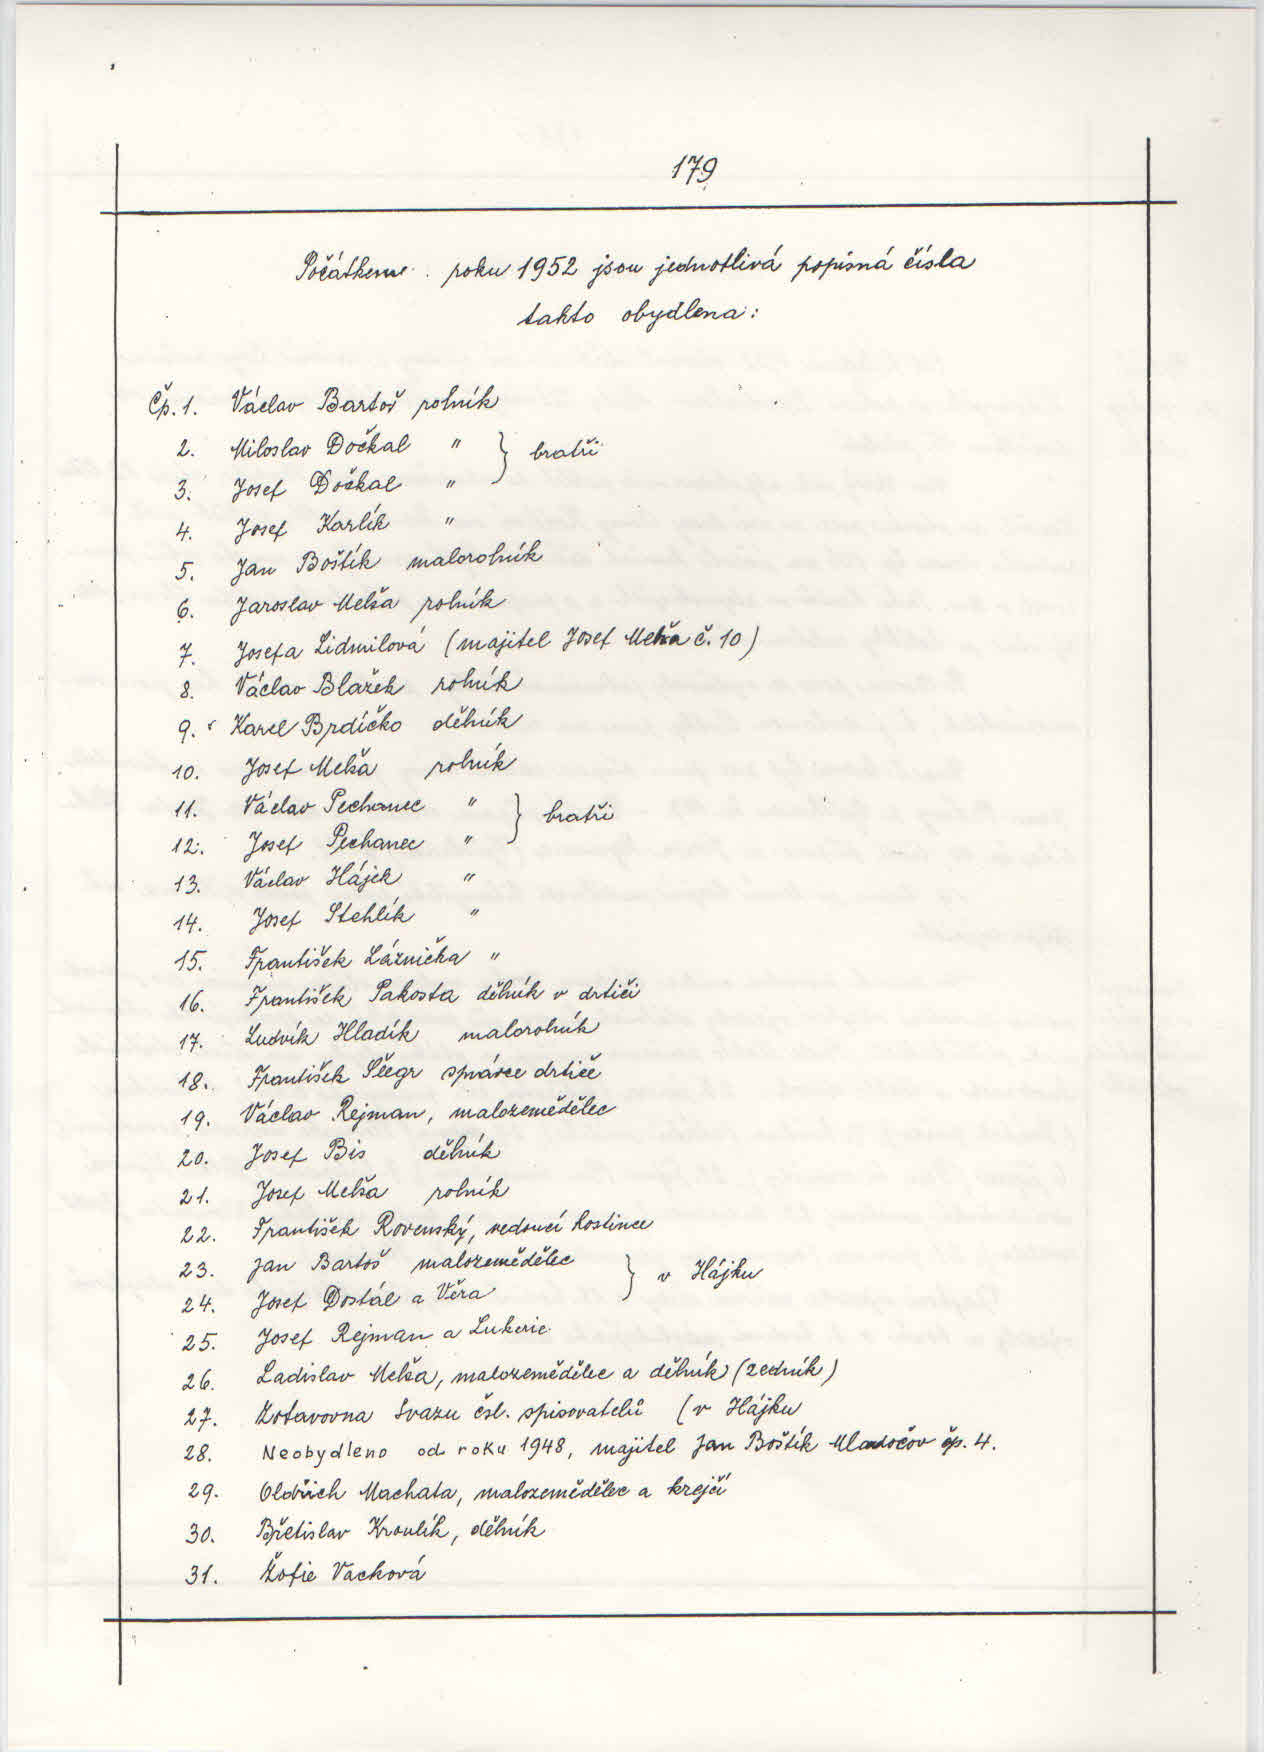 179
Počátkem roku 1952 jsou jednotlivá popisná čísla
takto obydlena:
Čp. 1. Václav Bartoš rolník
2. Miloslav Dočkal " } bratři
3. Josef Dočkal "
4. Josef Karlík "
5. Jan Boštík malorolník
6. Jaroslav Melša rolník
7. Josefa Lidmilová (majitel Josef Melša č. 10)
8. Václav Blažek rolník
9. Karel Brdíčko dělník
10. Josef Melša rolník
11. Václav Pechanec " } bratři
12. Josef Pechanec "
13. Václav Hájek "
14. Josef Stehlík "
15. František Láznička "
16. František Pakosta dělník v drtiči
17. Ludvík Hladík malorolník
18. František Šlégr správce drtiče
19. Václav Rejman, malozemědělec
20. Josef Bis dělník
21. Josef Melša rolník
22. František Rovenský, vedoucí hostince
23. Jan Bartoš malozemědělec } v Hájku
24. Josef Dostál a Věra
25. Josef Rejman a
26. Ladislav Melša, malozemědělec a dělník (zedník)
27. Zotavovna Svazu čsl. spisovatelů (v Hájku
28. Neobydleno od roku 1948, majitel Jan Boštík Mladočov čp. 4.
29. Oldřich Machata, malozemědělec a krejčí
30. Břetislav Kroulík, dělník
31. Žofie Vacková